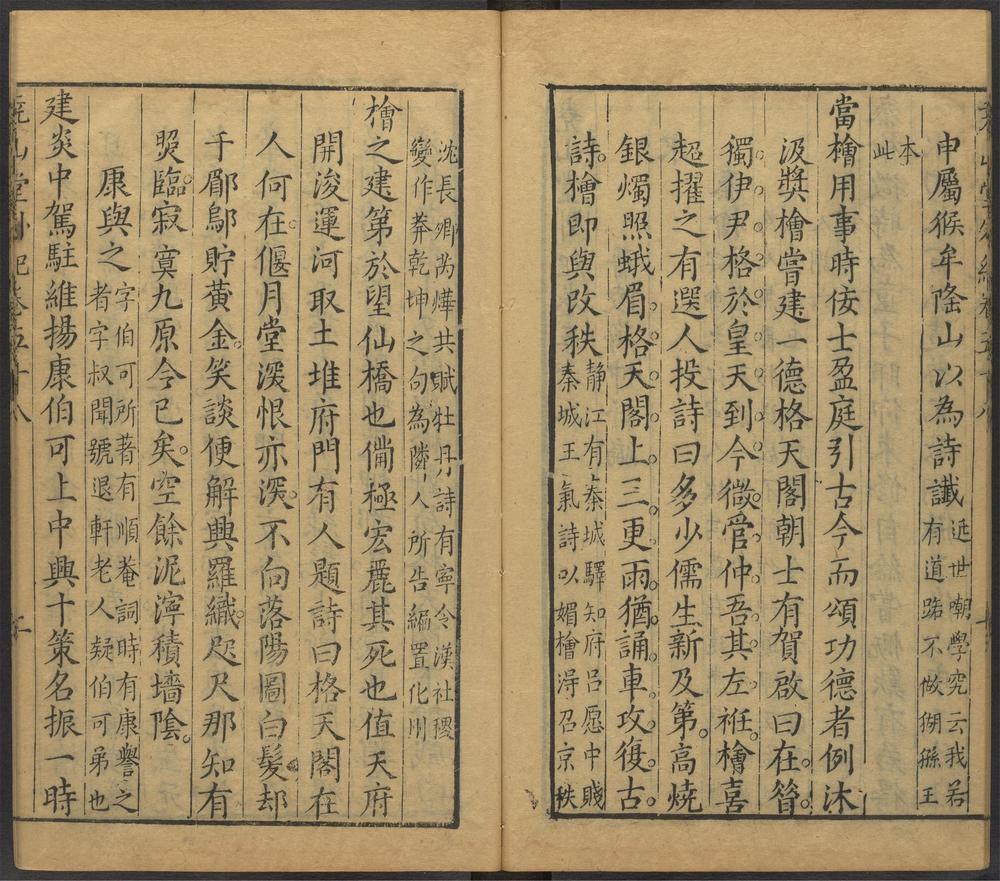 申屬猴牟隆山以為詩讖近世嘲學究云我若有道路不做猢猻王
本此
當檜用事時佞士盈庭引古今而頌功德者例沐
汲獎檜嘗建一德格天閣朝士有賀啟曰在昔
獨伊尹格於皇天到今微管仲吾其左衽檜喜
超擢之有選人投詩曰多少儒生新及第高燒
銀燭照蛾眉格天閣上三更雨猶誦車攻復古
詩檜即與改秩静江有秦城驛知府呂愿中賤秦城王氣詩以媚檜得召京秩
沈長卿芮燁共賦牡丹詩有寧令漢社稷變作莽乾坤之句為隣人所告編置化州
檜之建第於望仙橋也備極宏麗其死也值天府
開浚運河取土堆府門有人題詩曰格天閣在
人何在偃月堂深恨亦深不向落陽圖白髮却
千郿鄔貯黃金笑談便解興羅織咫尺那知有
照臨寂寞九原今已矣空餘泥濘積墻陰
康與之字伯可所著有順菴詞時有康譽之者字叔聞號退軒老人疑伯可弟也
建炎中駕駐維揚康伯可上中興十策名振一時
堯山堂外紀卷五十八